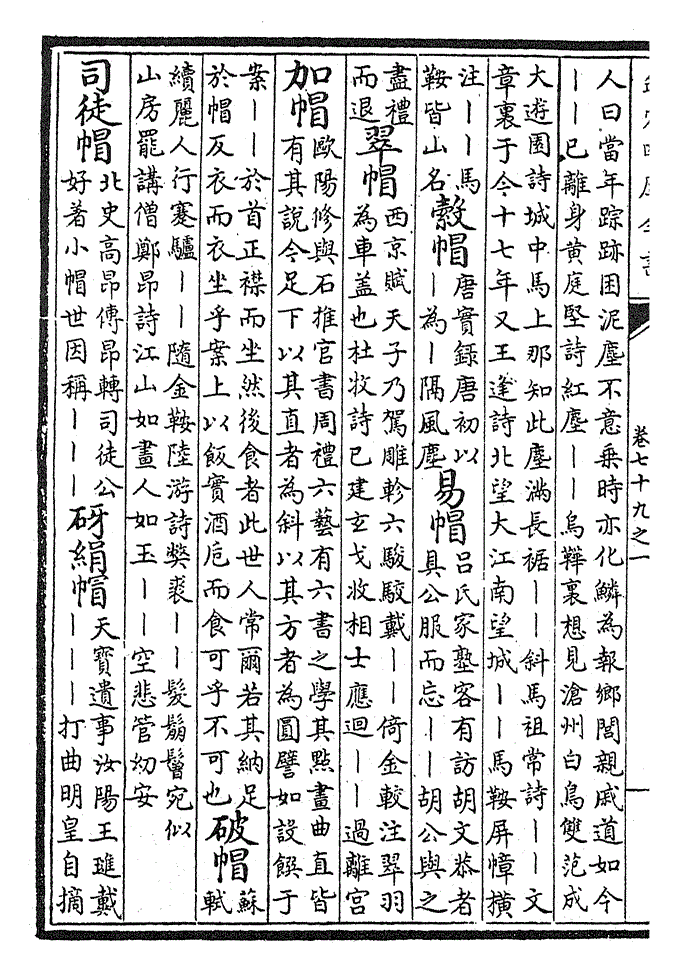 欽定四庫全書
卷七十九之一
人曰當年踪跡困泥塵不意乗時亦化鱗為報鄉閭親戚道如今
——已離身黄庭堅詩紅塵——烏鞾裏想見滄州白鳥雙范成
大遊園詩城中馬上那知此塵滿長裾——斜馬祖常詩——文
章裏于今十七年又王逢詩北望大江南望城——馬鞍屏幛横
注——馬
鞍皆山名
縠帽
唐實録唐初以
—為—隔風塵
易帽
吕氏家塾客有訪胡文恭者
具公服而忘——胡公與之
盡禮
而退
翠帽
西京賦天子乃駕雕軫六駿駮戴——倚金較注翠羽
為車盖也杜牧詩已建玄戈收相士應迴——過離宫
加帽
歐陽修與石推官書周禮六藝有六書之學其點畫曲直皆
有其說今足下以其直者為斜以其方者為圓譬如設饌于
案——於首正襟而坐然後食者此世人常爾若其納足
於帽反衣而衣坐乎案上以飯實酒巵而食可乎不可也
破帽
蘇
軾
續麗人行蹇驢——隨金鞍陸游詩弊裘——髮鬅鬙宛似
山房罷講僧鄭昂詩江山如畫人如玉——空悲管幼安
司徒帽
北史高昂傳昂轉司徒公
好著小帽世因稱———
砑絹帽
天寶遺事汝陽王璡戴
———打曲明皇自摘